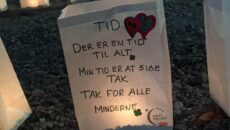 TID
DER ER EN TID
TIL ALT
MIN TID ER AT SIGE
TAK
TAK FOR ALLE
MINDERNE